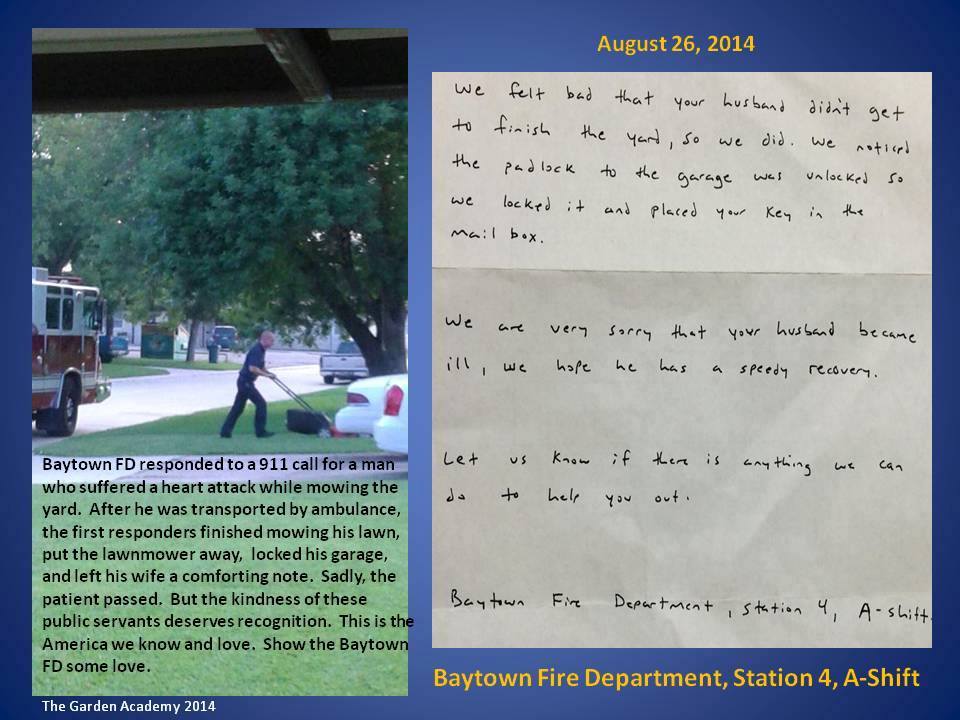 August 26, 2014
We felt bad that your husband didn't get
to finish the yard, so we did. We noticed
the padlock to the garage was unlocked so
we locked it and placed your key in the
mail box.
We are very sorry that your husband became
ill, we hope he has a speedy recovery.
Let us know if there is anything we can
do to help you out.
Baytown Fire Department, Station 4, A-shift.
Baytown FD responded to a 911 call for a man
who suffered a heart attack while mowing the
yard.  After he was transported by ambulance,
the first responders finished mowing his lawn,
put the lawnmower away,  locked his garage,
and left his wife a comforting note.  Sadly, the
patient passed.  But the kindness of these
public servants deserves recognition.  This is the
America we know and love.  Show the Baytown
FD some love.
Baytown Fire Department, Station 4, A-Shift
The Garden Academy 2014